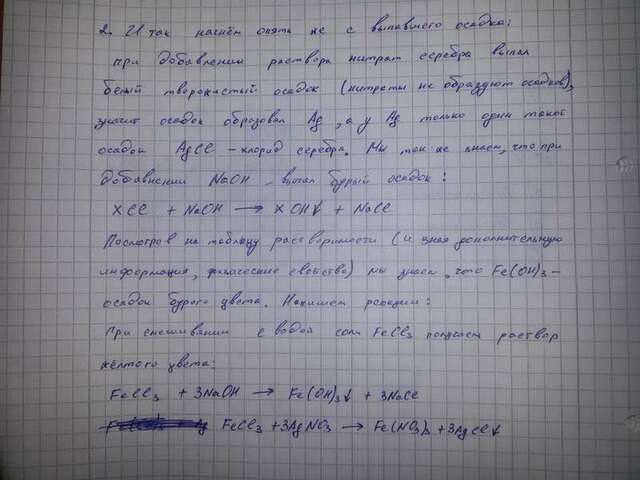 2. И так начнём опять же с выпавшего осадка:
при добавлении раствора нитрат серебра выпал
белый творожистый осадок (нитраты не образуют осадков),
значит осадок образовал Ag, а у Ag только один такой
осадок AgCl - хлорид серебра. Мы так же знаем, что при
добавлении NaOH выпал бурый осадок:
XCl + NaOH → XOH↓ + NaCl
Посмотрев на таблицу растворимости (и зная дополнительную
информация, физические свойства) мы знаем, что Fe(OH)3 -
осадок бурого цвета. Напишем реакции:
При смешивании с водой соли FeCl3 получаем раствор
жёлтого цвета:
FeCl3 + 3NaOH → Fe(OH)3↓ + 3NaCl
FeCl3 + 3AgNO3 → Fe(NO3)3 + 3AgCl↓